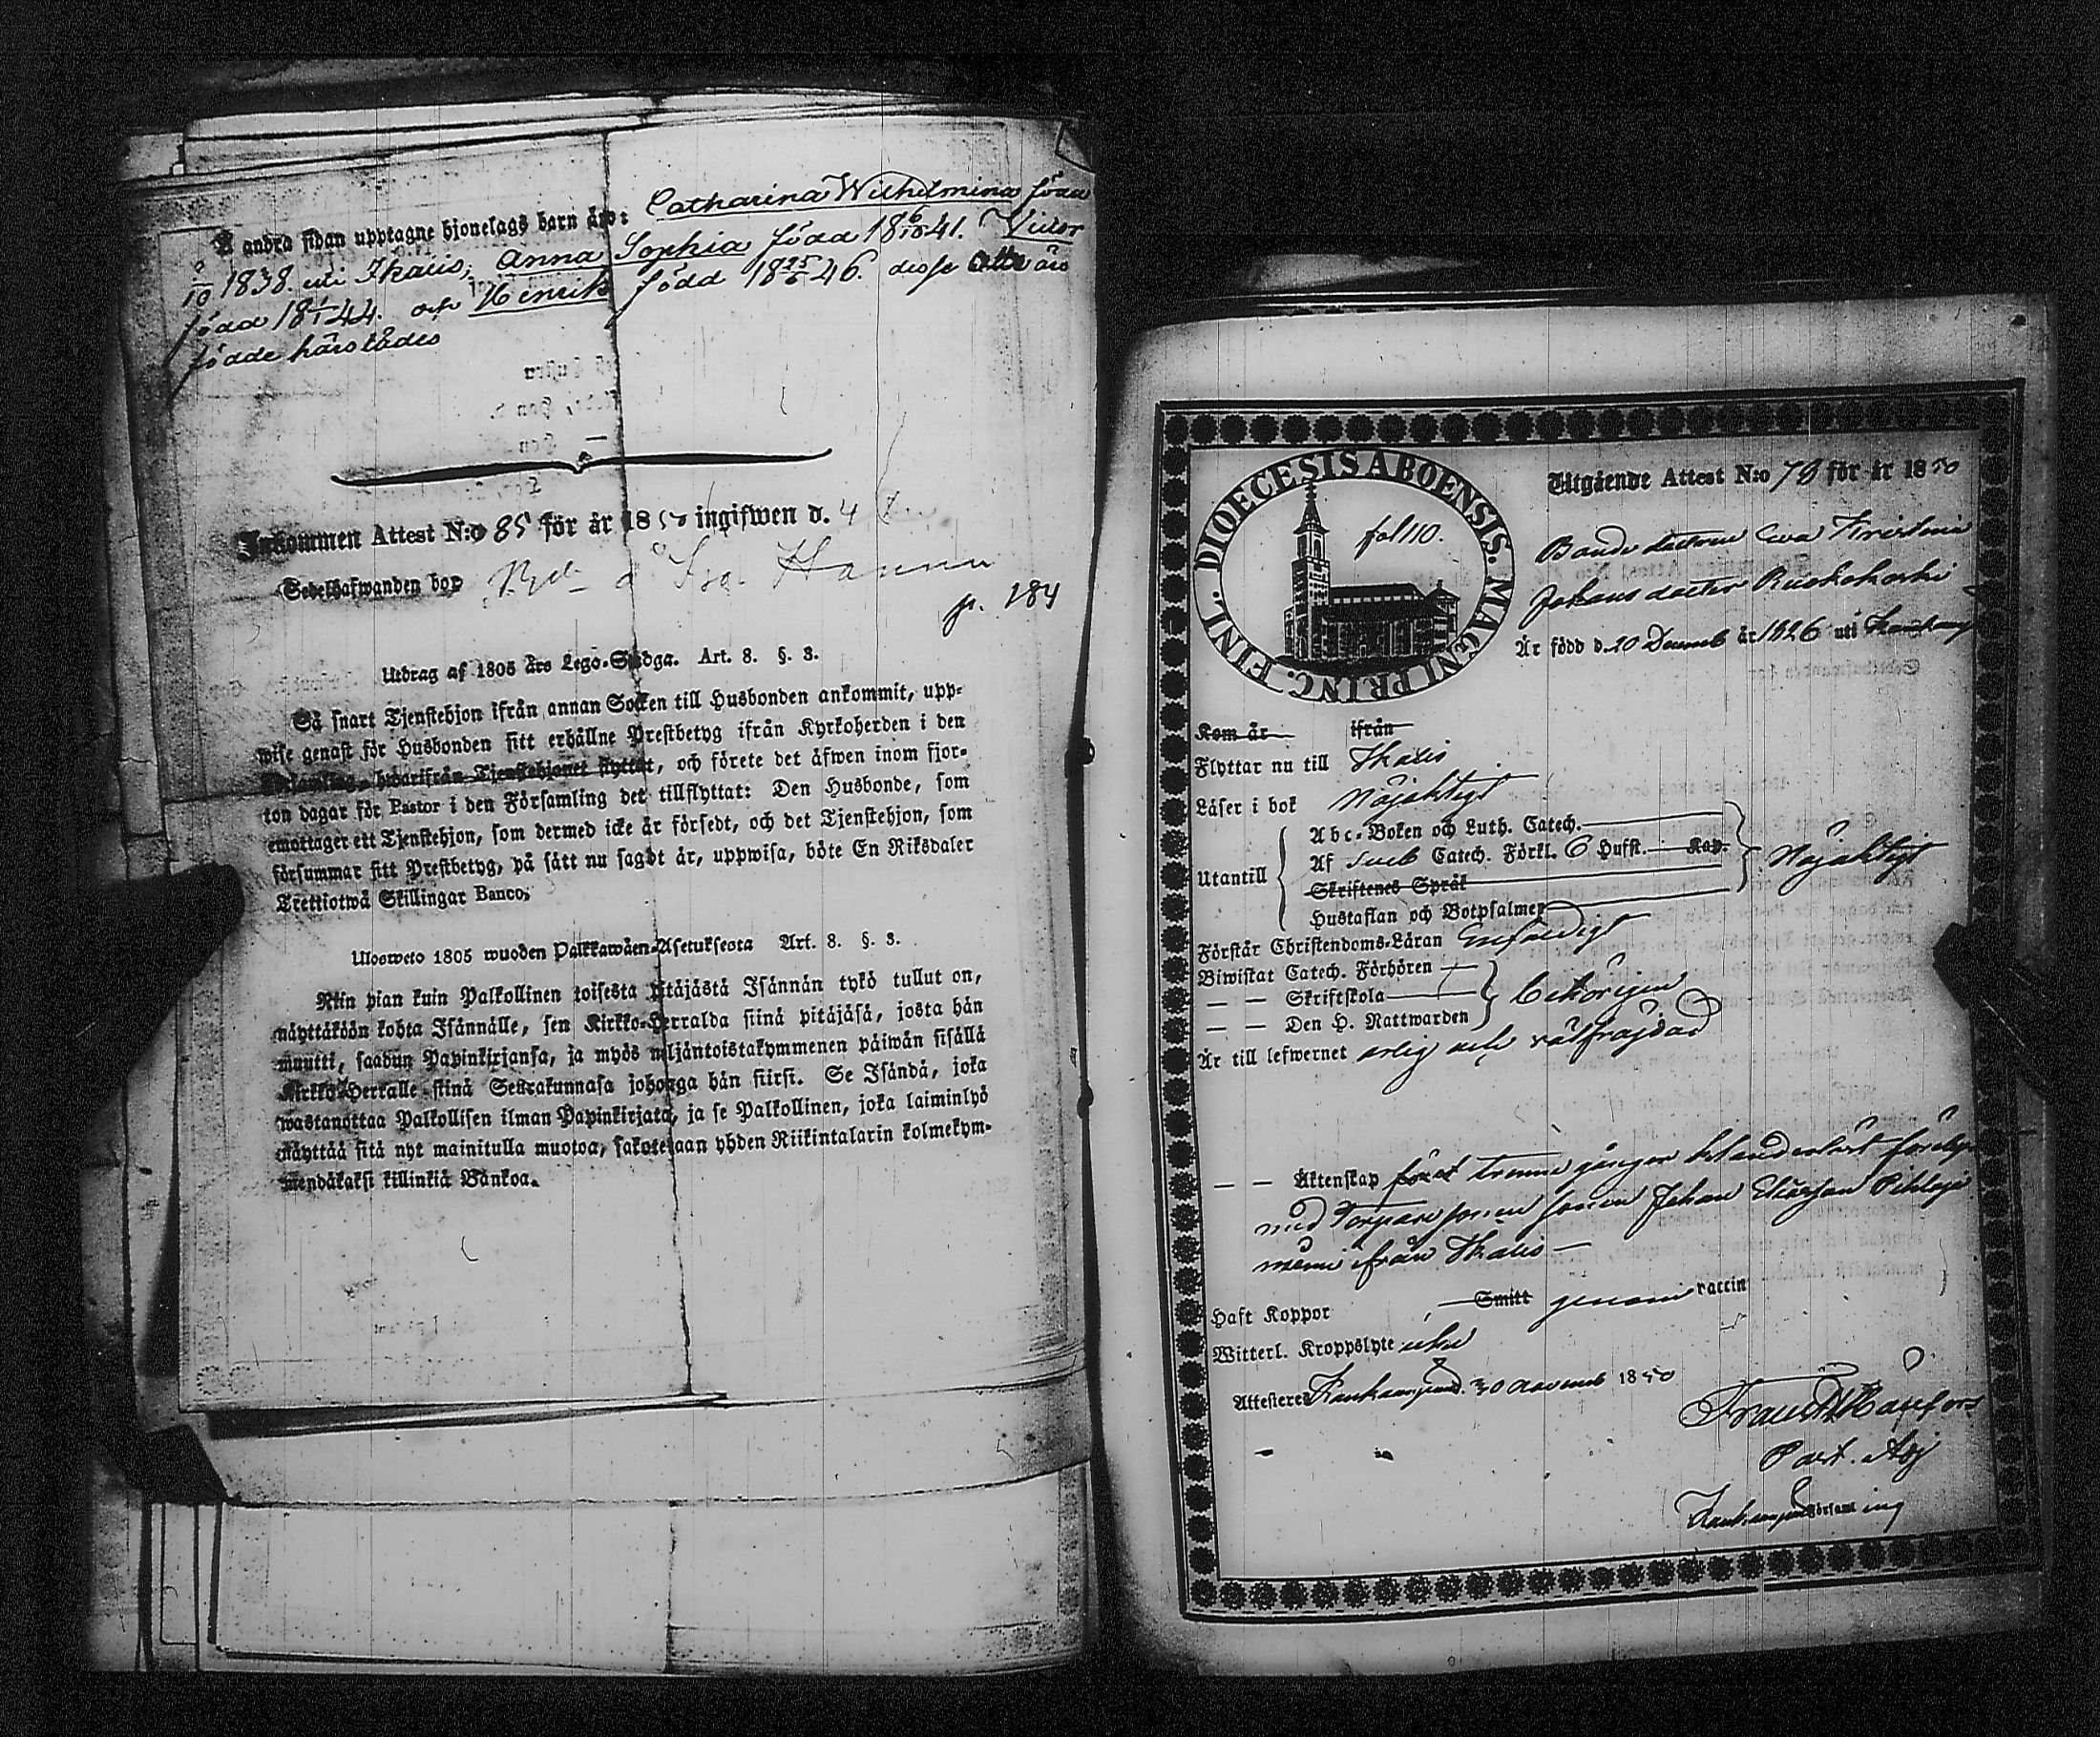 Å andra sidan upptagne hjonelags barn äro: Catharina Wilhelmina född
1838. uti Ikalis, Anna Sophia född 18 6/10 41. Victor
född 18 1/1 44. och Henrik född 18 25/6 46. desse alle äro
födde härstädes
Inkommen Attest N:o 85 för år 1850 ingifwen d. 4
Sedelhafwanden bor
p. 184
Utdrag af 1805 års Lego-Stadga. Art. 8. §. 3.
Så snart Tjenstehjon ifrån annan Socken till Husbonden ankommit, upp-
wise genast för Husbonden sitt erhållne Prestbetyg ifrån Kyrkoherden i den
Församling, hwarifrån Tjenstehjonet flyttat, och förete det äfwen inom fjor-
ton dagar för Pastor i den Församling det tillflyttat: Den Husbonde, som
emottager ett Tjenstehjon, som dermed icke är försedt, och det Tjenstehjon, som
försummar sitt Prestbetyg, på sätt nu sagdt är, uppwisa, böte En Riksdaler
Trettiotwå Skillingar Banco.
Ulosweto 1805 wuoden Palkkawäen-Asetuksesta Art. 8. §. 3.
Niin pian kuin Palkollinen toisesta pitäjästä Isännän tykö tullut on,
näyttäköön kohta Isännälle, sen Kirkko-Herralda siinä pitäjäsä, josta hän
muutti, saadun Papinkirjansa, ja myös neljäntoistakymmenen päiwän sisällä
Kirkko-Herralle siinä Seurakunnasa johonga hän siirsi. Se Isändä, joka
wastanottaa Palkollisen ilman Papinkirjata, ja se Palkollinen, joka laiminlyö
näyttää sitä nyt mainitulla muotoa, sakotetaan yhden Riikintalarin kolmekym-
mendäkaksi killinkiä Bankoa.
DIOECESIS ABOENSIS. MAGNI PRINC. FINL.
fol 110.
Utgående Attest N:o 79 för år 1850
Bonde dottren Eva Kristina
Johans dotter Ruskokoski
Är född d. 20 Decemb år 1826 uti
Kom år ifrån
Flyttar nu till Ikalis
Läser i bok Nöjaktigt
Utantill
Abc-Boken och Luth. Catech.
Af Sveb Catech. Förkl. 6 Hufst. Kap.
Skriftenes Språk
Hustaflan och Botpsalmer
Nöjaktigt
Förstår Christendoms-Läran Enfaldigt
Biwistat Catech. Förhören
— — Skriftskola
— — Den H. Nattwarden
Behörigen
Är till lefwernet ärlig och välfräjdad
— — Äktenskap trenne gånger
med Torpare sonen Johan
ifrån Ikalis —
Haft Koppor Smitt genom vaccin
Witterl. Kroppslyte icke
Attesteres Kankaanpää d. 30 Novemb 1850
Past. Adj
Kankaanpää Församling